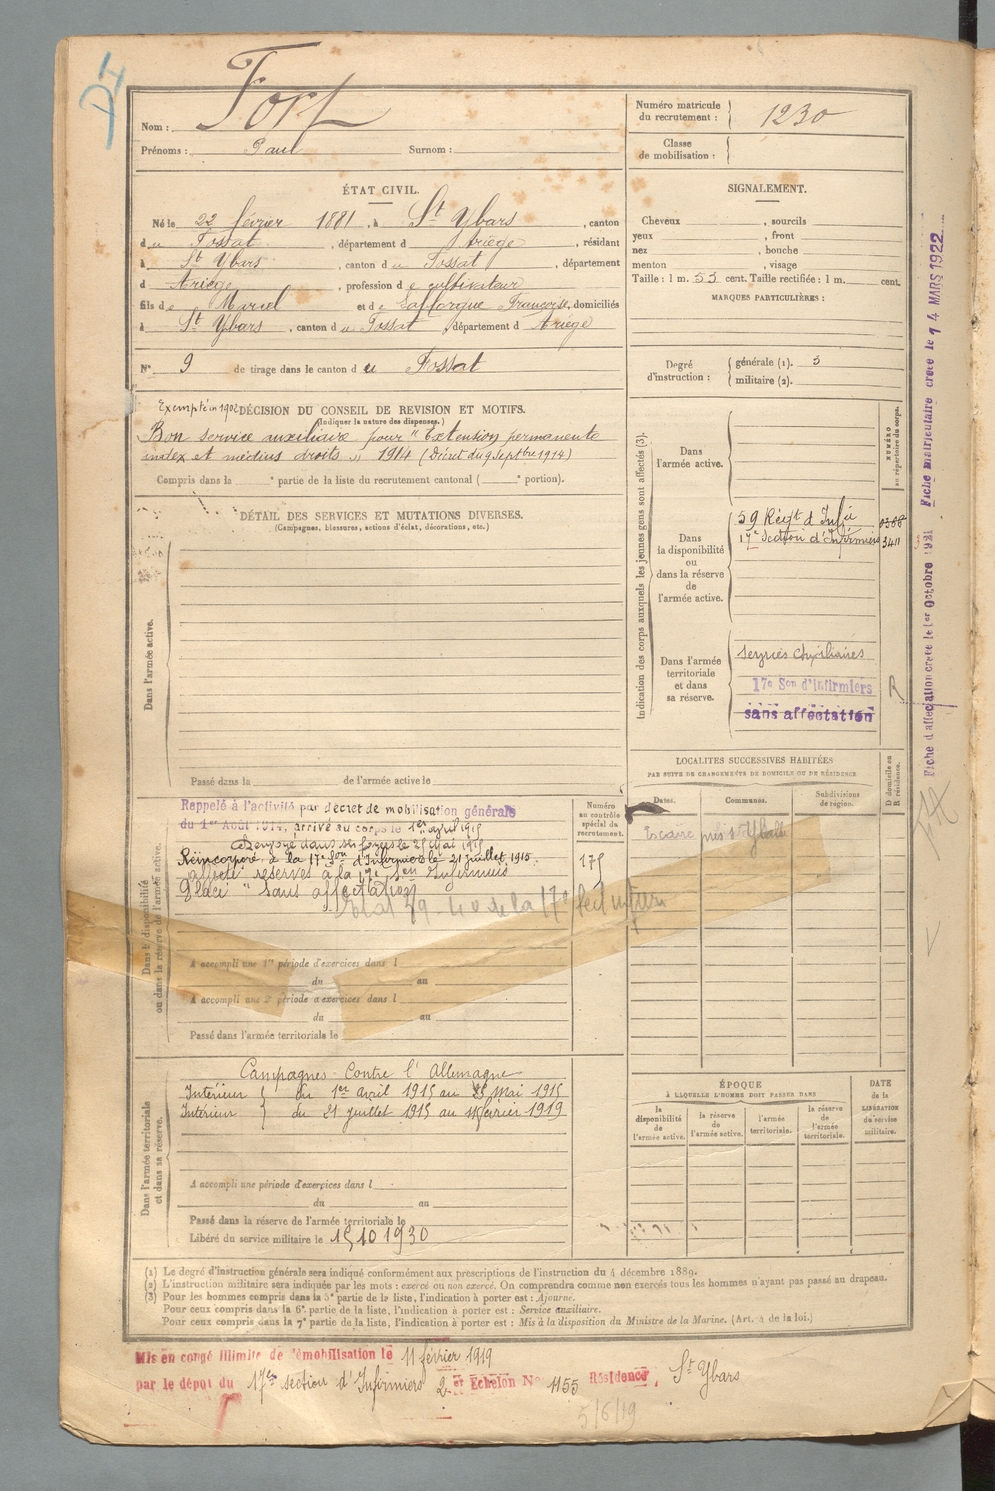 Nom : Fort
Prénoms : Paul Surnom :
Numéro matricule du recrutement : 1230
Classe de mobilisation :
ÉTAT CIVIL.
Né le 22 février 1881, à St Ybars, canton
du Fossat, département d Ariège, résidant
à St Ybars, canton du Fossat, département
d Ariège, profession de cultivateur
fils de Marcel et de Laffargue Françoise, domiciliés
à St Ybars, canton du Fossat, département d Ariège
N° 9 de tirage dans le canton du Fossat
SIGNALEMENT.
Cheveux , sourcils
yeux , front
nez , bouche
menton , visage
Taille : 1 m. 55 cent. Taille rectifiée : 1 m. cent.
MARQUES PARTICULIÈRES :
Degré d'instruction : générale (1). 3
militaire (2).
Exempté en 1902
DÉCISION DU CONSEIL DE REVISION ET MOTIFS.
(Indiquer la nature des dispenses.)
Bon service auxiliaire pour "Extension permanente
index et médius droits" 1914 (Décret du 9 Septbre 1914)
Compris dans la e partie de la liste du recrutement cantonal ( e portion).
DÉTAIL DES SERVICES ET MUTATIONS DIVERSES.
(Campagnes, blessures, actions d'éclat, décorations, etc.)
Dans l'armée active.
Passé dans la de l'armée active le
Indication des corps auxquels les jeunes gens sont affectés (3).
NUMÉRO au répertoire du corps.
Dans l'armée active.
Dans la disponibilité ou dans la réserve de l'armée active.
59 Régt d'Infie
17e Section d'Infirmiers 3411
Dans l'armée territoriale et dans sa réserve.
Services Auxiliaires
17e Son d'infirmiers
sans affectation
Fiche d'affectation créée le 1er Octobre 1921
Fiche matriculaire créée le 14 MARS 1922
LOCALITÉS SUCCESSIVES HABITÉES
PAR SUITE DE CHANGEMENTS DE DOMICILE OU DE RÉSIDENCE
Dates. Communes. Subdivisions de région. D domicile ou R résidence.
près St Ybars
Dans la disponibilité ou dans la réserve de l'armée active.
Numéro au contrôle spécial du recrutement.
175
Rappelé à l'activité par décret de mobilisation générale
du 1er Août 1914, arrivé au corps le 1er avril 1915
Renvoyé dans ses foyers le 25 Mai 1915
Réincorporé à la 17e Son d'Infirmiers le 21 juillet 1915.
réserves à la 17e Son Infirmiers
"Sans affectation"
de la 17e
A accompli une 1re période d'exercices dans l
du au
A accompli une 2e période d'exercices dans l
du au
Passé dans l'armée territoriale le
Dans l'armée territoriale et dans sa réserve.
Campagnes Contre l'Allemagne
Intérieur du 1er avril 1915 au 25 Mai 1915
Intérieur du 21 juillet 1915 au février 1919
A accompli une période d'exercices dans l
du au
Passé dans la réserve de l'armée territoriale le
Libéré du service militaire le 15 10 1930
ÉPOQUE
À LAQUELLE L'HOMME DOIT PASSER DANS
la disponibilité de l'armée active.
la réserve de l'armée active.
l'armée territoriale.
la réserve de l'armée territoriale.
DATE de la LIBÉRATION du service militaire.
(1) Le degré d'instruction générale sera indiqué conformément aux prescriptions de l'instruction du 4 décembre 1889.
(2) L'instruction militaire sera indiquée par les mots : exercé ou non exercé. On comprendra comme non exercés tous les hommes n'ayant pas passé au drapeau.
(3) Pour les hommes compris dans la 5e partie de la liste, l'indication à porter est : Ajourné.
Pour ceux compris dans la 6e partie de la liste, l'indication à porter est : Service auxiliaire.
Pour ceux compris dans la 7e partie de la liste, l'indication à porter est : Mis à la disposition du Ministre de la Marine. (Art. 4 de la loi.)
Mis en congé illimité de démobilisation le 11 février 1919
par le dépôt du 17e section d'Infirmiers 2er Echelon N° 1155 Résidence St Ybars
5/6/19